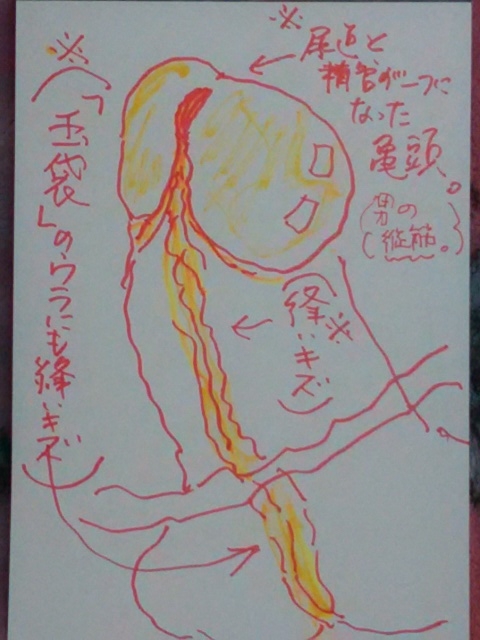 ※尿道と
精管が一つに
なった
亀頭。
(男の
縦筋。)
※
(縫いキズ)
※(「玉袋」のウラにも縫いキズ)